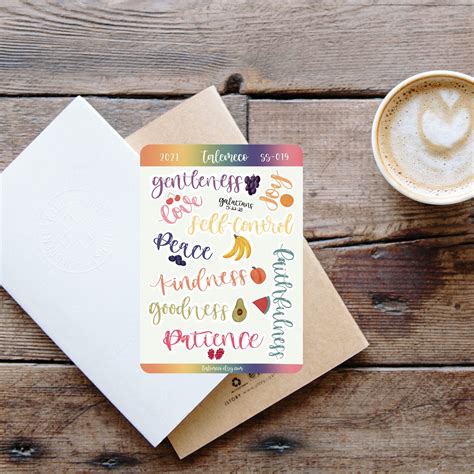 2021 Talemeco SS-019
gentleness
joy
love
galatians
5:22-23
self-control
Peace
faithfulness
kindness
goodness
Patience
talemeco.etsy.com